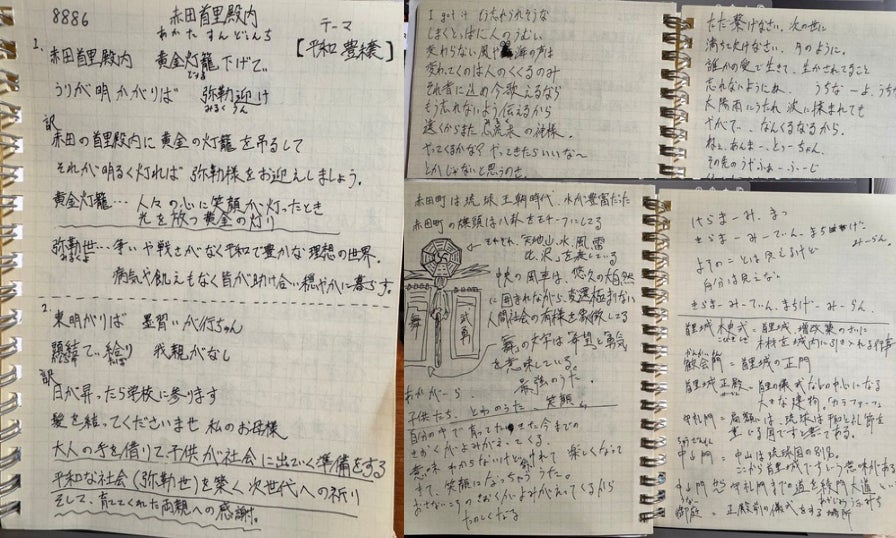 8886 赤田首里殿内
あかたすんどぅんち
テーマ
【平和 豊穣】
1.
赤田首里殿内 黄金灯籠下げて
うりが明かがりば 弥勒迎け
みるく うん
訳
赤田の首里殿内に黄金の灯籠を吊るして
それが明るく灯れば弥勒様をお迎えしましょう。
黄金灯籠…人々の心に笑顔が灯ったとき
光を放つ黄金の灯り
弥勒世…争いや戦さがなく平和で豊かな理想の世界。
病気や飢えもなく皆が助け合い穏やかに暮らす。
2.
東明がりば 墨習いが行ちゅん
結てい 我親がなし
訳
日が昇ったら学校に参ります
髪を結ってくださいませ 私のお母様
大人の手を借りて子供が社会に出ていく準備をする
平和な社会(弥勒世)を築く次世代への祈り
そして、育ててくれた両親への感謝。
I got it もう忘れられそうな
変わらない風や海の声は
変わてくのは人のつくるのみ
今歌えるなら
もう忘れないよう伝えるから
遠くからまた の神様、
やってくるかな?やってきたらいいな〜
とかじゃないと思うのも、
ただ繋げなさい、次の世に
満ちて欠けなさい、月のように。
誰かの愛で生きて、生かされてること
忘れないようにね、うちなーよ、うちな
太陽雨にうたれ 波に揉まれても
やがて、、なんくるなるから、
ねぇ、あんまー、とぅーちゃん、
その先のうやふぁーふーじ
赤田町は琉球王朝時代、水が豊富だった
赤田町の旗頭は八卦をモチーフにしてる
それぞれ、天地山、水、風雷
火沢」を表している
中央の風車は、悠久の大自然
に囲まれながら、変遷極まりない
人間社会の有様を象徴してる
舞
武勇
舞の文字は希望と勇気
を意味している。
最強のうた、
あかがーら、
子供たち、とわのうた、笑顔、
自分の中で育ってた 今までの
きおくがよみがえってくる。
意味わからないけど 楽しくなって
きて、笑顔になっちゃううた。
おさないころのきおくがよみがえってくるから
たのしくなる
けらまーみーまつ
きらまーみーてぃん、まちげー
みーらん
よそのことは見えるけど
自分は見えない
きらまーみーてぃん、まちげーみーらん、
首里城木曳式=首里城、増改築のさいに
木材を城内に引き入れる行事
歓会門=首里城の正門
首里城正殿=首里の儀式などの中心になる
大きな建物。
守礼門=扁額には、琉球は礼節を
重じる国ですと書てある。
中山門=中山は琉球国の別名。
ここから首里城ですという意味がある
中山門から守礼門までの道を綾門大道という
うなー
御庭=正殿前の儀式をする場所